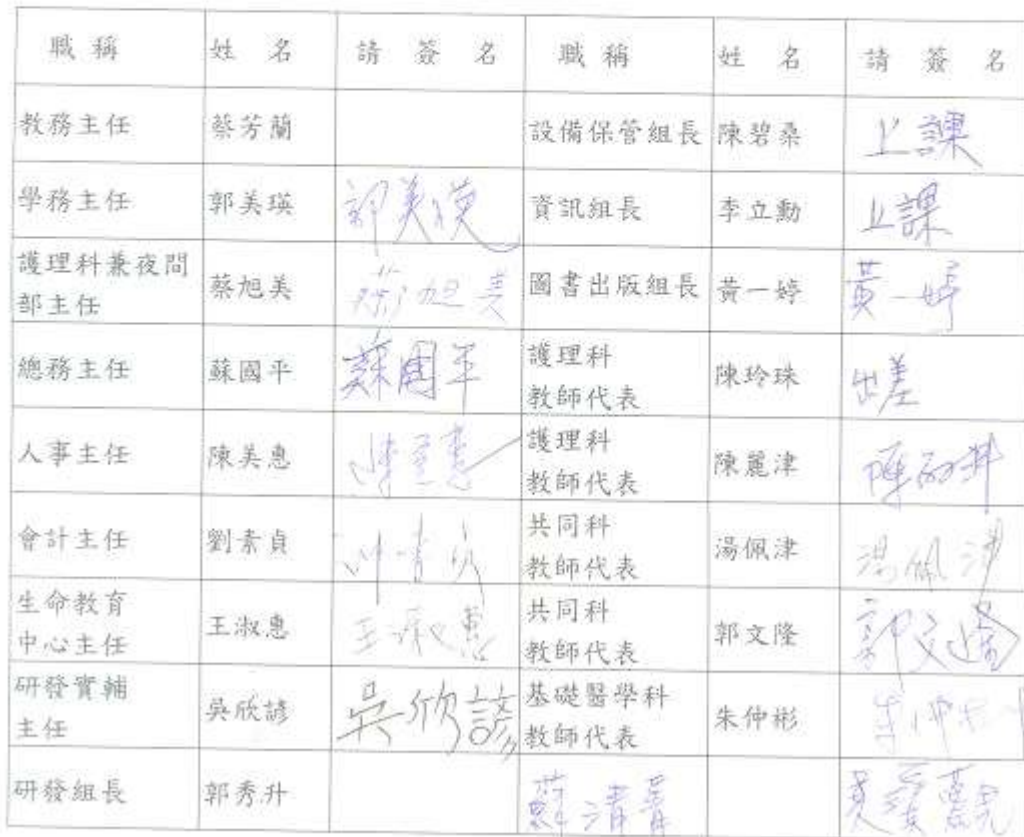 職稱 姓名 請簽名 職稱 姓名 請簽名
教務主任 蔡芳蘭 設備保管組長 陳碧桑 上課
學務主任 郭美瑛 郭美瑛 資訊組長 李立勳 上課
護理科兼夜間
部主任 蔡旭美 蔡旭美 圖書出版組長 黃一婷 黃一婷
總務主任 蘇國平 蘇國平 護理科
教師代表 陳玲珠 出差
人事主任 陳美惠 陳美惠 護理科
教師代表 陳麗津 陳麗津
會計主任 劉素貞 共同科
教師代表 湯佩津 湯佩津
生命教育
中心主任 王淑惠 王淑惠 共同科
教師代表 郭文隆 郭文隆
研發實輔
主任 吳欣諺 吳欣諺 基礎醫學科
教師代表 朱仲彬 朱仲彬
研發組長 郭秀升 蘇清菁